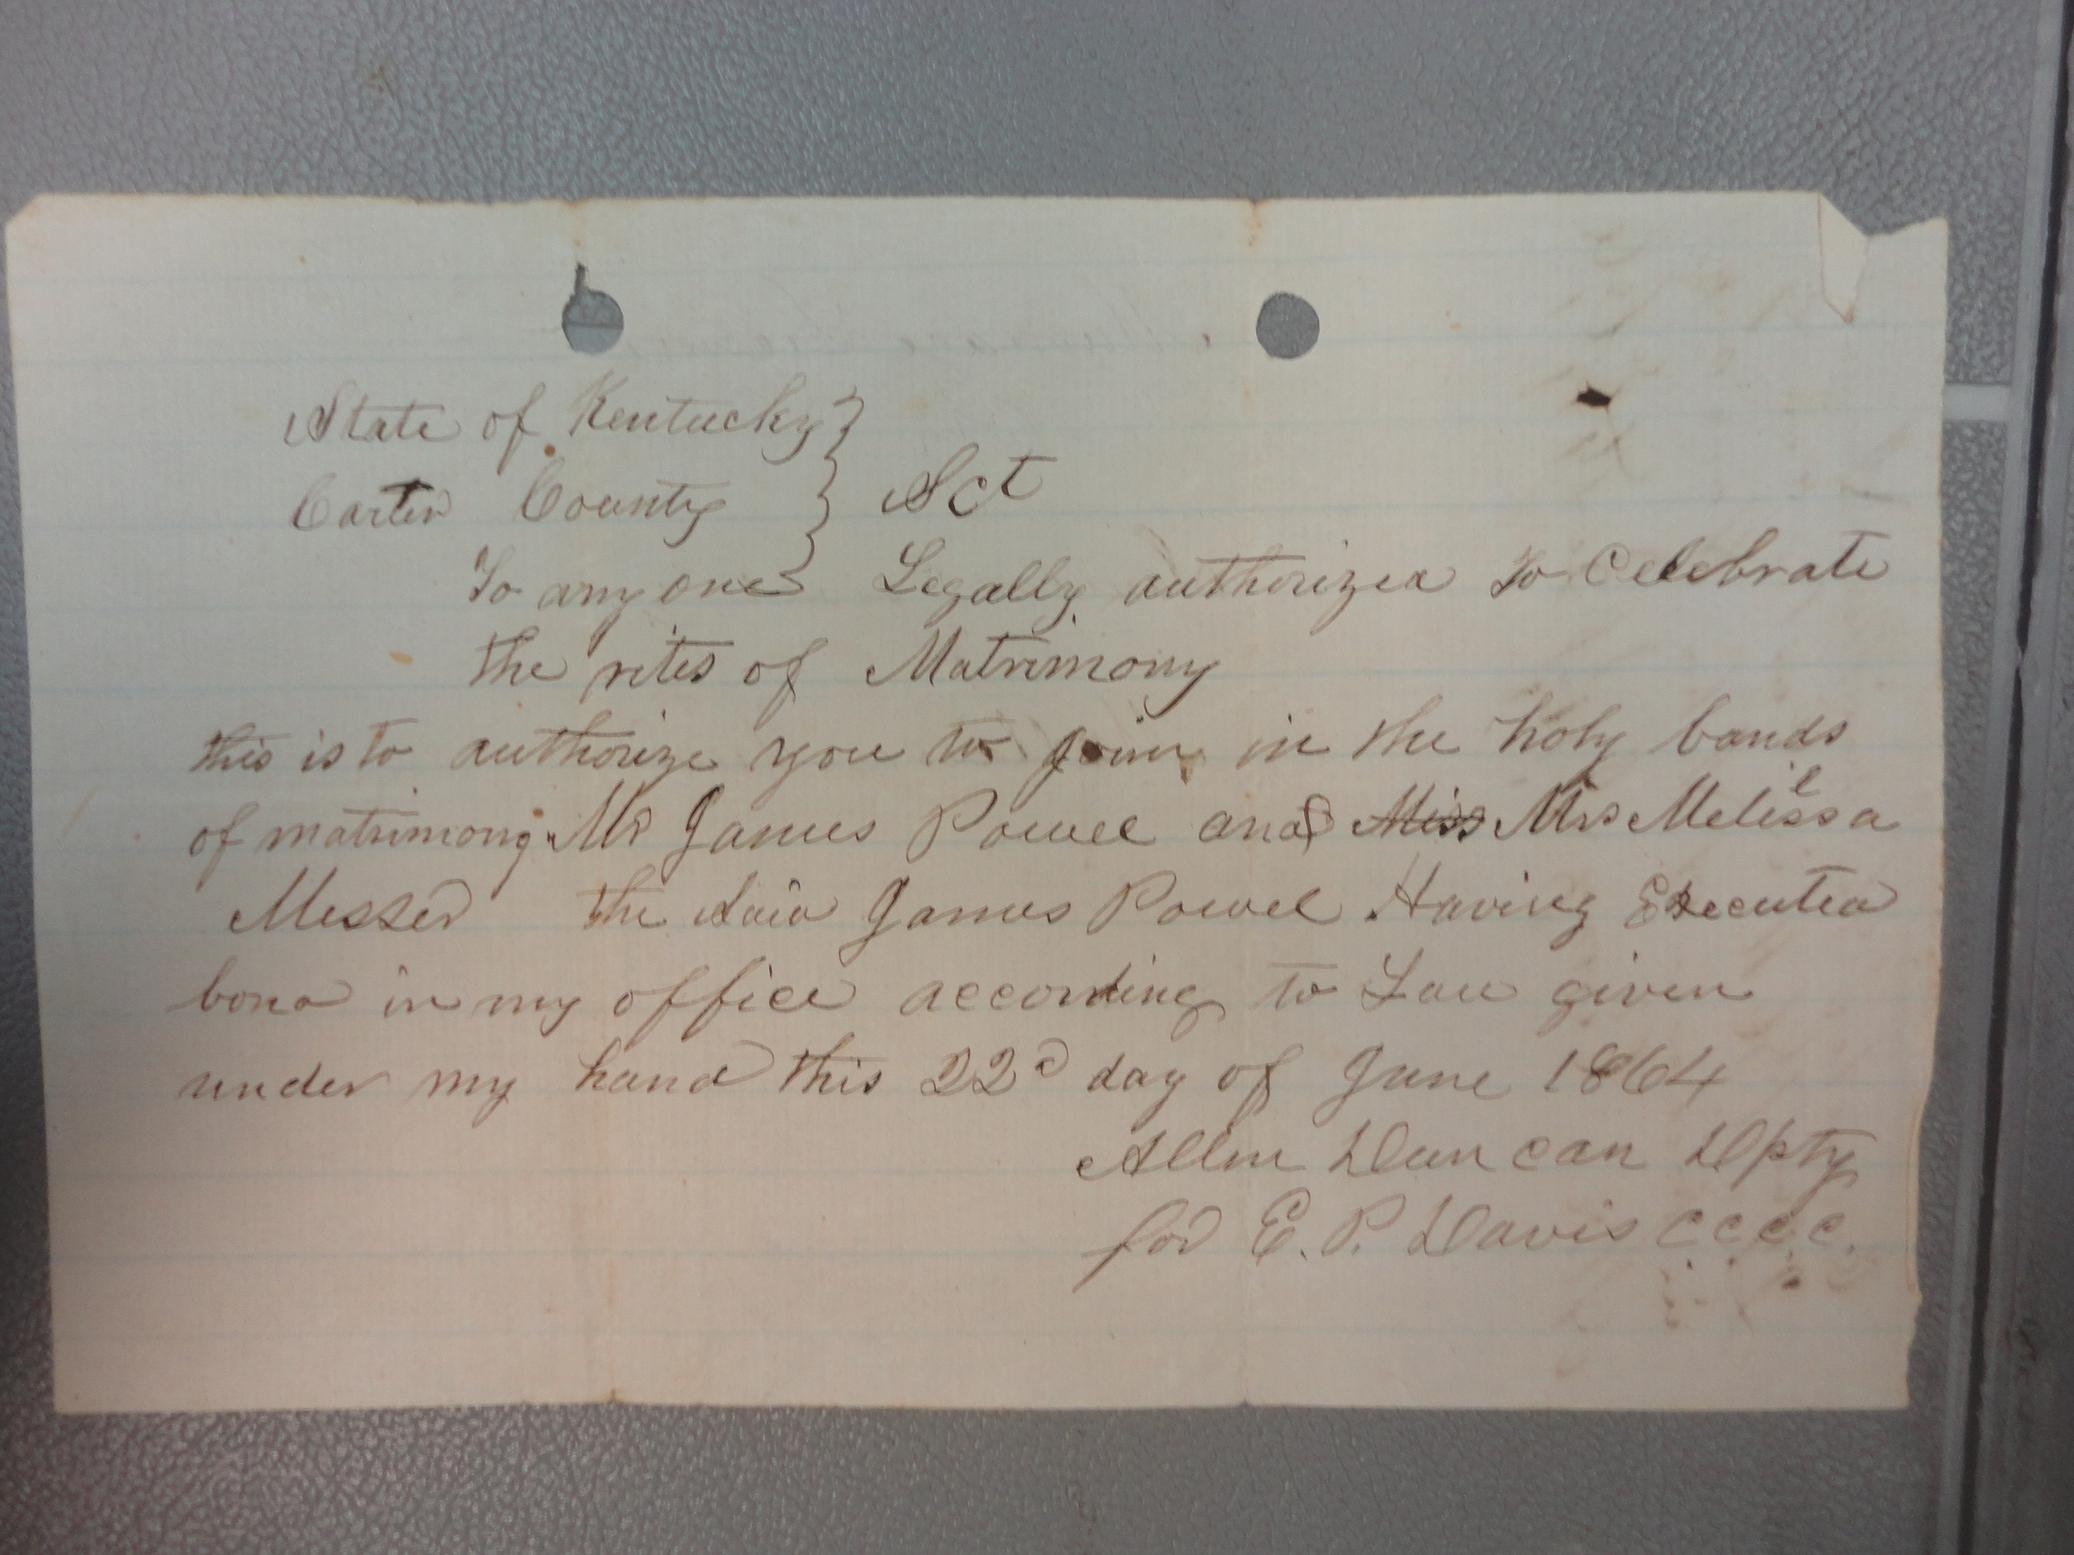 State of Kentucky }
Carter County } Sct
To any one Legally authorized to Celebrate
the rites of Matrimony
this is to authorize you to join in the holy bands
of matrimony Mr James Powel and Miss Mrs Melissa
Messer the said James Powel Having Executed
bond in my office according to Law given
under my hand this 22d day of June 1864
Allen Duncan Dpty
for E. P. Davis C C C C.